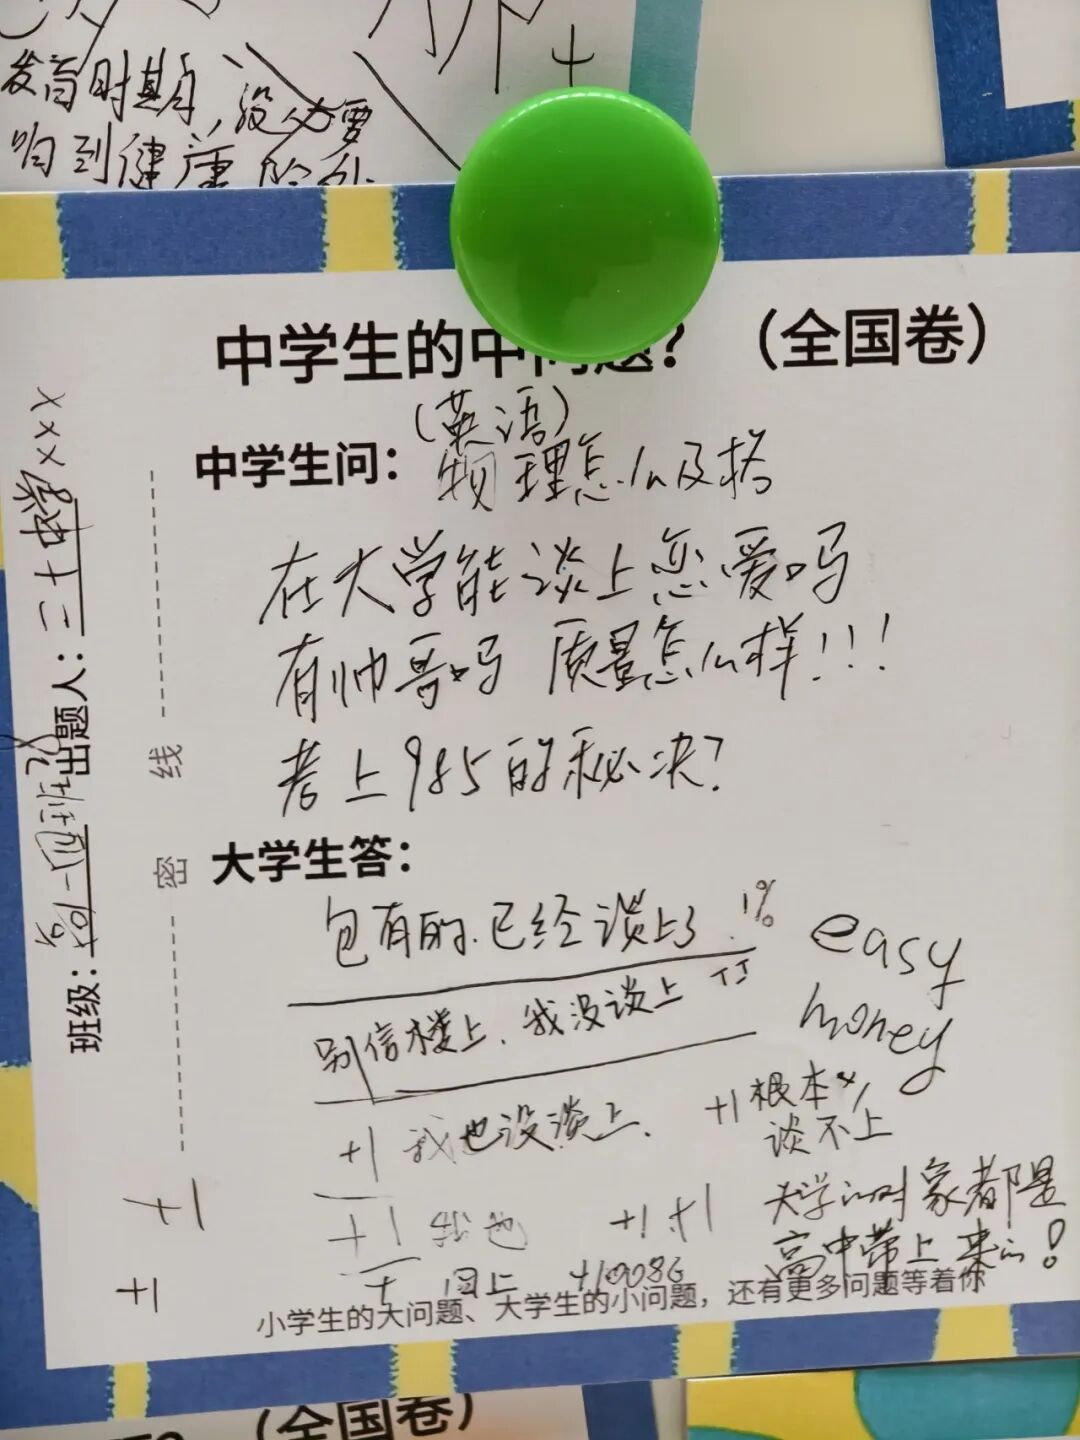 发育时期，没必要
响到健康
中学生的中问题？（全国卷）
中学生问：(英语)
物理怎么及格
在大学能谈上恋爱吗
有帅哥吗 质量怎么样!!!
考上985的秘决?
大学生答：
包有的.已经谈上了.1%
别信楼上.我没谈上
easy
money
+1 我也没谈上.
+1 根本
谈不上
+1 我也 +1 +1
大学的对象都是
高中带上来的!
+ 同上 +10086
小学生的大问题、大学生的小问题，还有更多问题等着你
班级：高一四班
出题人：二十中学xxx
密 线
+1
+1
（全国卷）